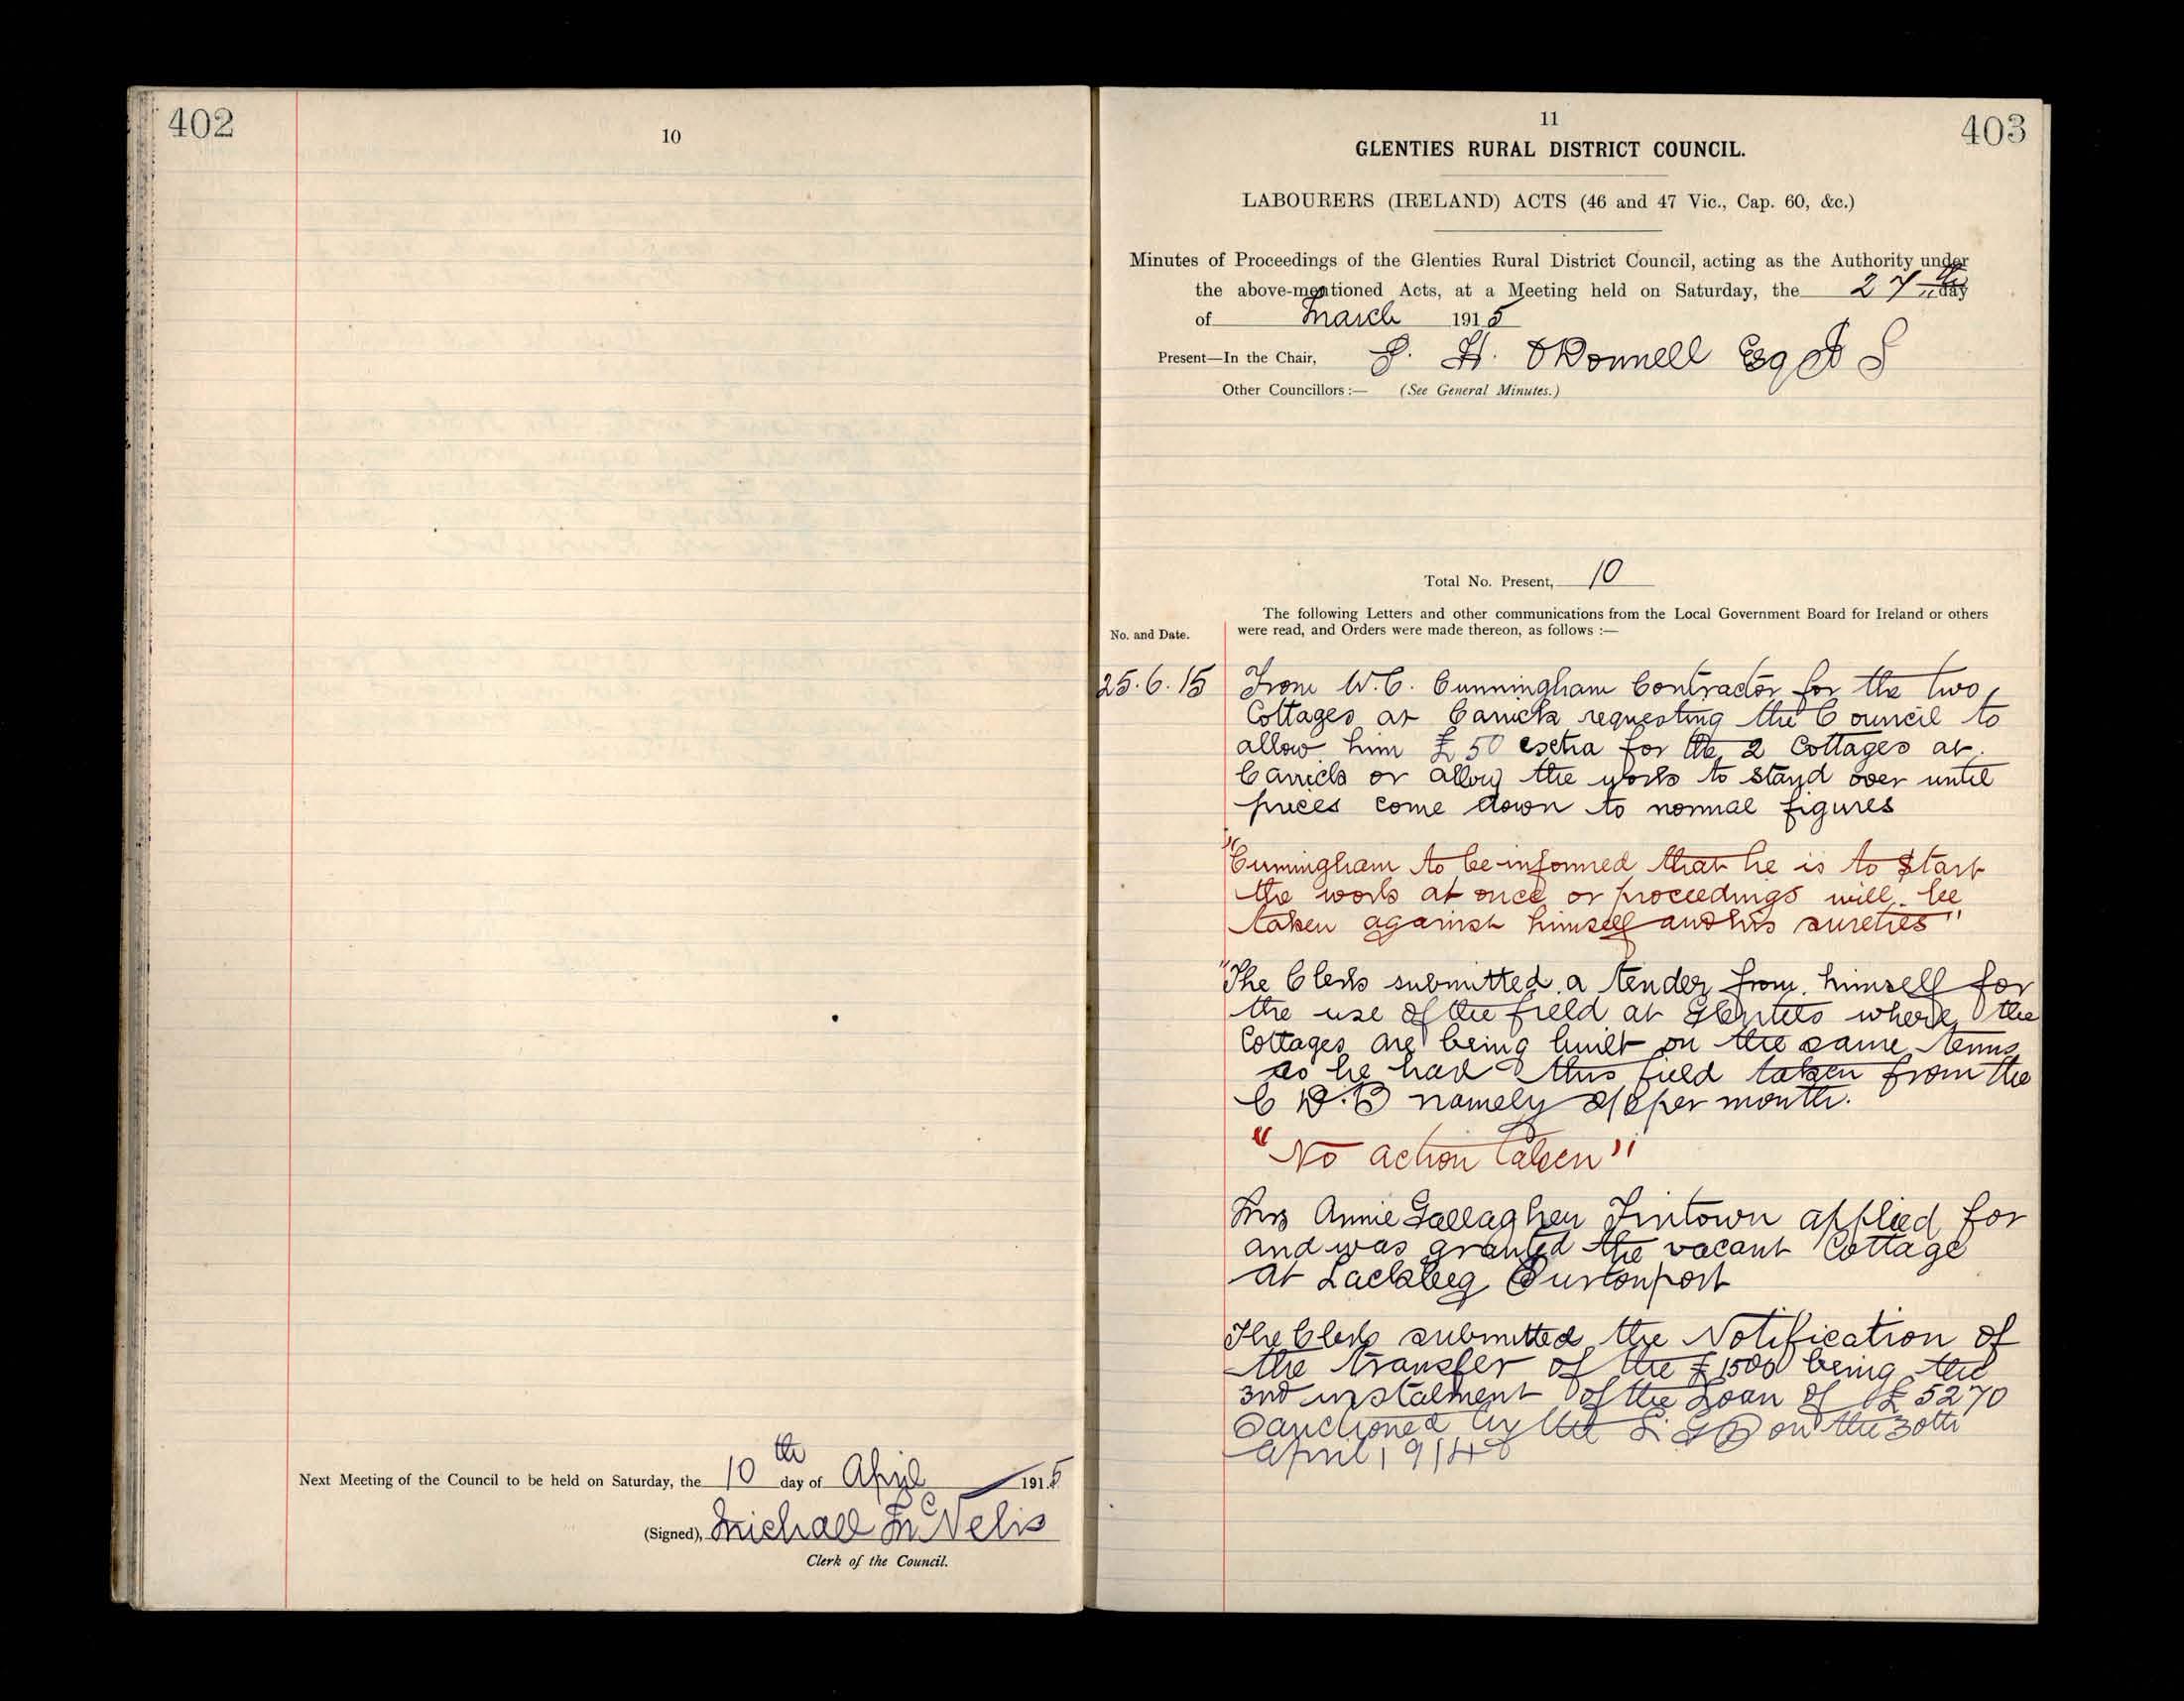 402
10
Next Meeting of the Council to be held on Saturday, the 10th day of April 1915
(Signed), Michael McNelis
Clerk of the Council.
11
403
GLENTIES RURAL DISTRICT COUNCIL.
LABOURERS (IRELAND) ACTS (46 and 47 Vic., Cap. 60, &c.)
Minutes of Proceedings of the Glenties Rural District Council, acting as the Authority under
the above-mentioned Acts, at a Meeting held on Saturday, the 27th day
of March 1915
Present—In the Chair, H. O'Donnell Esq
Other Councillors :— (See General Minutes.)
Total No. Present, 10
The following Letters and other communications from the Local Government Board for Ireland or others
No. and Date. were read, and Orders were made thereon, as follows :—
25.6.15 From W.C. Cunningham Contractor for the two
Cottages at Carrick requesting the Council to
allow him £50 extra for the 2 Cottages at
Carrick or allow the work to stand over until
prices come down to normal figures
"Cunningham to be informed that he is to start
the work at once or proceedings will be
taken against himself and his sureties"
"The Clerk submitted a tender from himself for
the use of the field at Glenties where the
Cottages are being built on the same terms
as he had this field taken from the
C D.B namely per month.
"No action taken"
Mrs Annie Gallagher Fintown applied for
and was granted the vacant Cottage
at Lackbeg Burtonport
The Clerk submitted the Notification of
the transfer of the £1500 being the
3rd instalment of the Loan of £5270
Sanctioned by the L.G.B on the 30th
April 1914